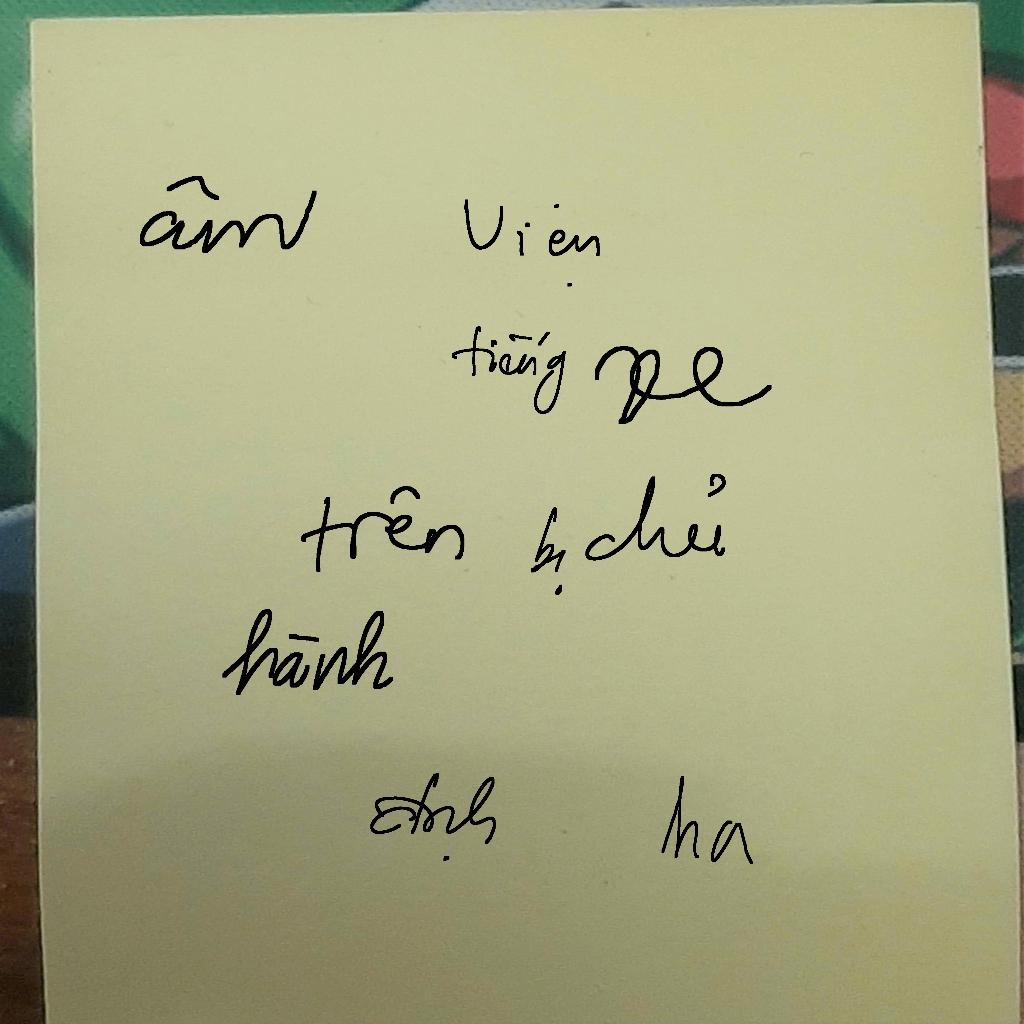 âm viện
tiếng xe
trên bị chủ
hành
định ha